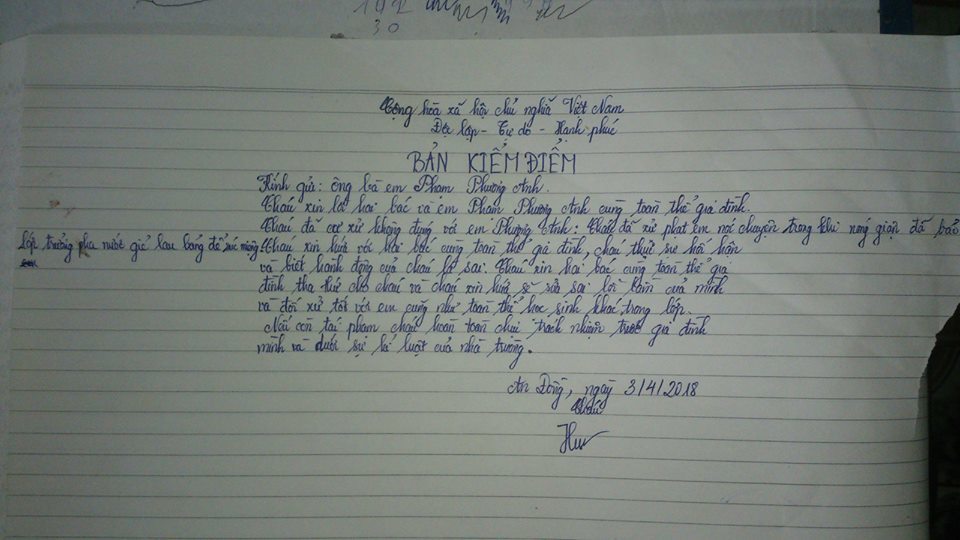 102
30
Cộng hòa xã hội chủ nghĩa Việt Nam
Độc lập - Tự do - Hạnh phúc
BẢN KIỂM ĐIỂM
Kính gửi: ông bà em Phạm Phương Anh.
Cháu xin lỗi hai bác và em Phạm Phương Anh cùng toàn thể gia đình
Cháu đã cư xử không đúng với em Phương Anh: Cháu đã xử phạt em nói chuyện trong khi nóng giận đã bảo
lớp trưởng pha nước giẻ lau bảng để súc miệng. Cháu xin hứa với hai bác cùng toàn thể gia đình, cháu thực sự hối hận
và biết hành động của cháu là sai. Cháu xin hai bác cùng toàn thể gia
đình tha thứ cho cháu và cháu xin hứa sẽ sửa sai lỗi lầm của mình
và đối xử tốt với em cũng như toàn thể học sinh khác trong lớp.
Nếu còn tái phạm cháu hoàn toàn chịu trách nhiệm trước gia đình
mình và dưới sự kỉ luật của nhà trường.
An Đồng, ngày 3/4/2018
Cháu